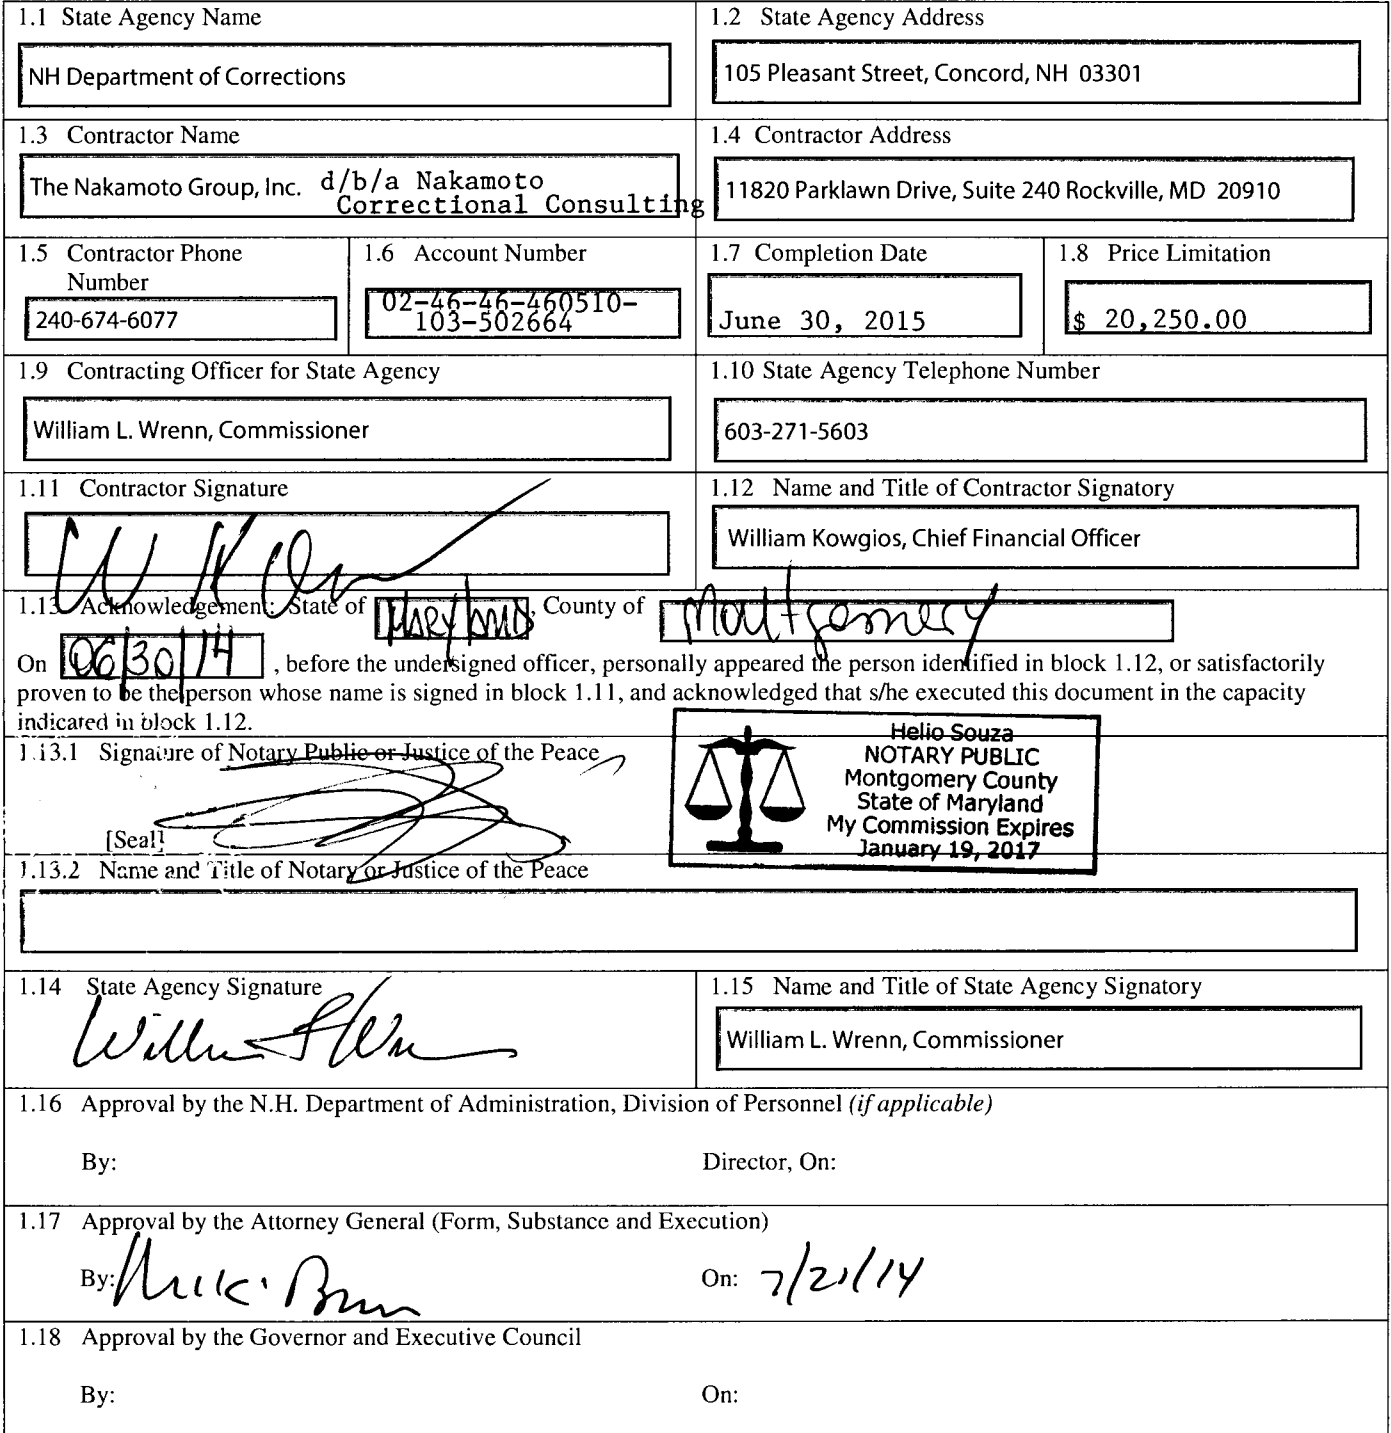 1.1 State Agency Name
NH Department of Corrections
1.2 State Agency Address
105 Pleasant Street, Concord, NH 03301
1.3 Contractor Name
The Nakamoto Group, Inc. d/b/a Nakamoto
Correctional Consulting
1.4 Contractor Address
11820 Parklawn Drive, Suite 240 Rockville, MD 20910
1.5 Contractor Phone
Number
240-674-6077
1.6 Account Number
02-46-46-460510-
103-502664
1.7 Completion Date
June 30, 2015
1.8 Price Limitation
$ 20,250.00
1.9 Contracting Officer for State Agency
William L. Wrenn, Commissioner
1.10 State Agency Telephone Number
603-271-5603
1.11 Contractor Signature
1.12 Name and Title of Contractor Signatory
William Kowgios, Chief Financial Officer
1.13 Acknowledgement: State of Maryland, County of Montgomery
On 06/30/14, before the undersigned officer, personally appeared the person identified in block 1.12, or satisfactorily
proven to be the person whose name is signed in block 1.11, and acknowledged that s/he executed this document in the capacity
indicated in block 1.12.
1.13.1 Signature of Notary Public or Justice of the Peace
[Seal]
Helio Souza
NOTARY PUBLIC
Montgomery County
State of Maryland
My Commission Expires
January 19, 2017
1.13.2 Name and Title of Notary or Justice of the Peace
1.14 State Agency Signature
1.15 Name and Title of State Agency Signatory
William L. Wrenn, Commissioner
1.16 Approval by the N.H. Department of Administration, Division of Personnel (if applicable)
By: Director, On:
1.17 Approval by the Attorney General (Form, Substance and Execution)
By: On: 7/21/14
1.18 Approval by the Governor and Executive Council
By: On: